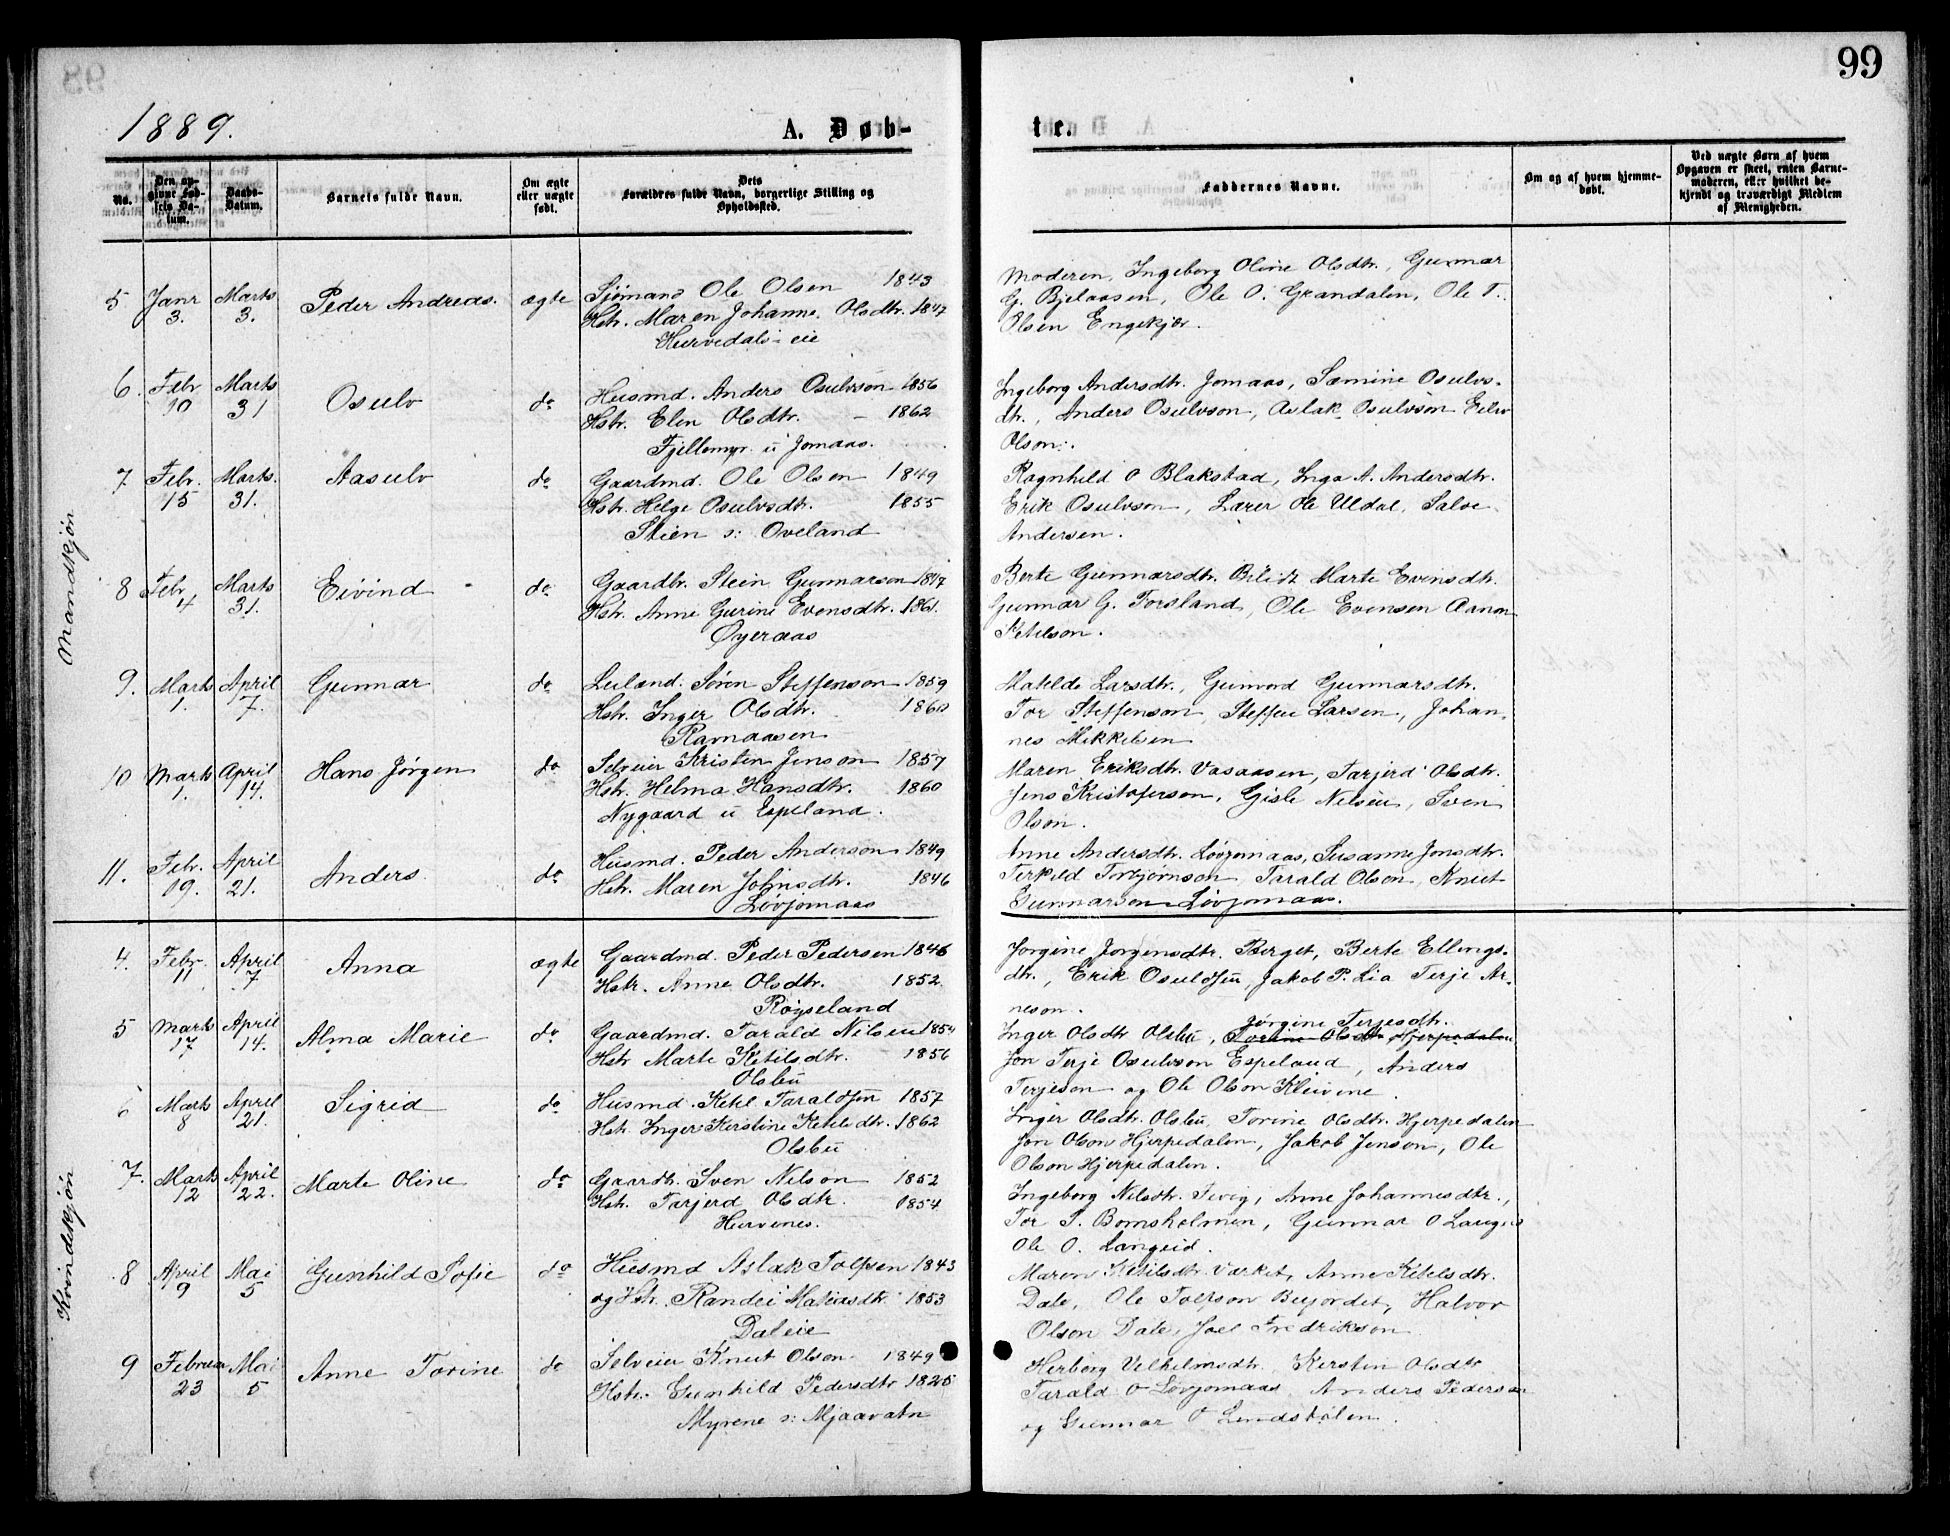 99
1889.
A. Døb-
te.
No.
Den op-
givne Fød-
sels Da-
tum.
Daabs-
Datum.
Barnets fulde Navn.
Om ægte
eller uægte
født.
Dets
Forældres fulde Navn, borgerlige Stilling og
Opholdssted.
Faddernes Navne.
Om og af hvem hjemme-
døbt.
Ved uægte Børn af hvem
Opgaven er skeet, enten Barne-
moderen, eller hvilket be-
kjendt og troværdigt Medlem
af Menigheden.
Mandkjøn
5 Janr 3. Marts 3. Peder Andreas. ægte
Sjømand Ole Olsen 1843
Hstr. Maren Johanne Olsdtr. 1847
Hurvedals-eie
Moderen, Ingeborg Oline Olsdtr., Gunnar
G. Bjelaasen, Ole O. Grandalen, Ole T.
Olsen Engekjær.
6. Febr 10 Marts 31 Osulv do
Husmd. Anders Osulvson 1856
Hstr. Elen Olsdtr. – 1862
Fjellemyr u Jomaas.
Ingeborg Andersdtr. Jomaas, Sæmine Osulvs-
dtr., Anders Osulvson, Aslak Osulvson Eilev
Olson.
7 Febr. 15 Marts. 31. Aasulv do
Gaardmd. Ole Olsen 1849
Hstr. Helge Osulvsdtr. 1855
Stien s: Oveland
Ragnhild O Blakstad, Inga A. Andersdtr.
Erik Osulvson, Lærer Ole Uldal, Salve
Andersen.
8 Febr 4 Marts 31. Eivind do
Gaardbr. Stein Gunnarson 1847
Hstr. Anne Gurine Evensdtr. 1861.
Øyeraas
Berte Gunnarsdtr. Marte Evensdtr.
Gunnar G. Torsland, Ole Evensen Aanon
Ketilson.
9. Marts 1. April 7. Gunnar do
Leiland. Søren Steffenson 1859
Hstr. Inger Olsdtr. 1860
Ramaasen
Matilde Larsdtr., Gunvord Gunnarsdtr.
Tor Steffenson, Steffen Larsen, Johan-
nes Mikkelsen
10 Marts 1. April 14. Hans Jørgen do
Selveier Kristen Jenson 1857
Hstr. Helma Hansdtr. 1860
Nygaard u Espeland.
Maren Eriksdtr. Vasaasen, Tarjerd Olsdtr.
Jens Kristoferson, Gisle Nilsen, Sven
Olson.
11. Febr. 19. April 21. Anders do
Husmd. Peder Anderson 1849
Hstr. Maren Johnsdtr. 1846
Løvjomaas
Anne Andersdtr. Løvjomaas, Susanne Jonsdtr.
Terkild Torbjørnson, Tarald Olson, Knut
Gunnarsen Løvjomaas.
Kvindekjøn
4. Febr. 11 April 7 Anna ægte
Gaardmd. Peder Pedersen 1846
Hstr. Anne Olsdtr. 1852.
Røyseland
Jorgine Jorgensdtr. Berget, Berte Ellings-
dtr., Erik Osuldsen, Jakob P. Lia Terje Ar-
neson.
5 Marts 17 April 14. Alma Marie do
Gaardmd. Tarald Nilsen 1854
Hstr Marte Ketilsdtr. 1856
Olsbu
Jørgine Terjesdtr.
Inger Olsdtr Olsbu, Torine Olsdtr Hjerpedalen
Jon Terje Osulvson Espeland, Anders
Terjeson og Ole Olson Kleivene.
6 Marts 8 April 21. Sigrid do
Husmd. Ketil Taraldsen 1857
Hstr. Inger Kerstine Ketilsdtr. 1862
Olsbu
Inger Olsdtr. Olsbu, Torine Olsdtr. Hjerpedalen
Jon Olson Hjerpedalen, Jakob Jenson, Ole
Olson Hjerpedalen.
7. Marts 12 April 22. Marte Oline do
Gaardbr. Sven Nilson 1852
Hstr. Tarjerd Olsdtr. 1854
Hurvenes.
Ingeborg Nilsdtr. Tveig, Anne Johannesdtr.,
Tor S. Bomsholmen, Gunnar O Langeid
Ole O. Langeid.
8 April 9 Mai 5 Gunhild Sofie do
Husmd Aslak Tolfsen 1843
og Hstr. Randei Matiasdtr. 1853
Daleie
Maren Ketilsdtr. Varket, Anne Ketelsdtr.
Dale, Ole Tolfson Beijordet, Halvor
Olson Dale, Joel Fredrikson
9 Februar 23 Mai 5 Anne Torine do
Selveier Knut Olson 1849
Hstr. Gunhild Pedersdtr 1825
Myrene s: Mjaavatn
Herborg Velhelmsdtr. Kersten Olsdtr
Tarald O Løvjomaas Anders Pederson
og Gunnar O Lindstølen.